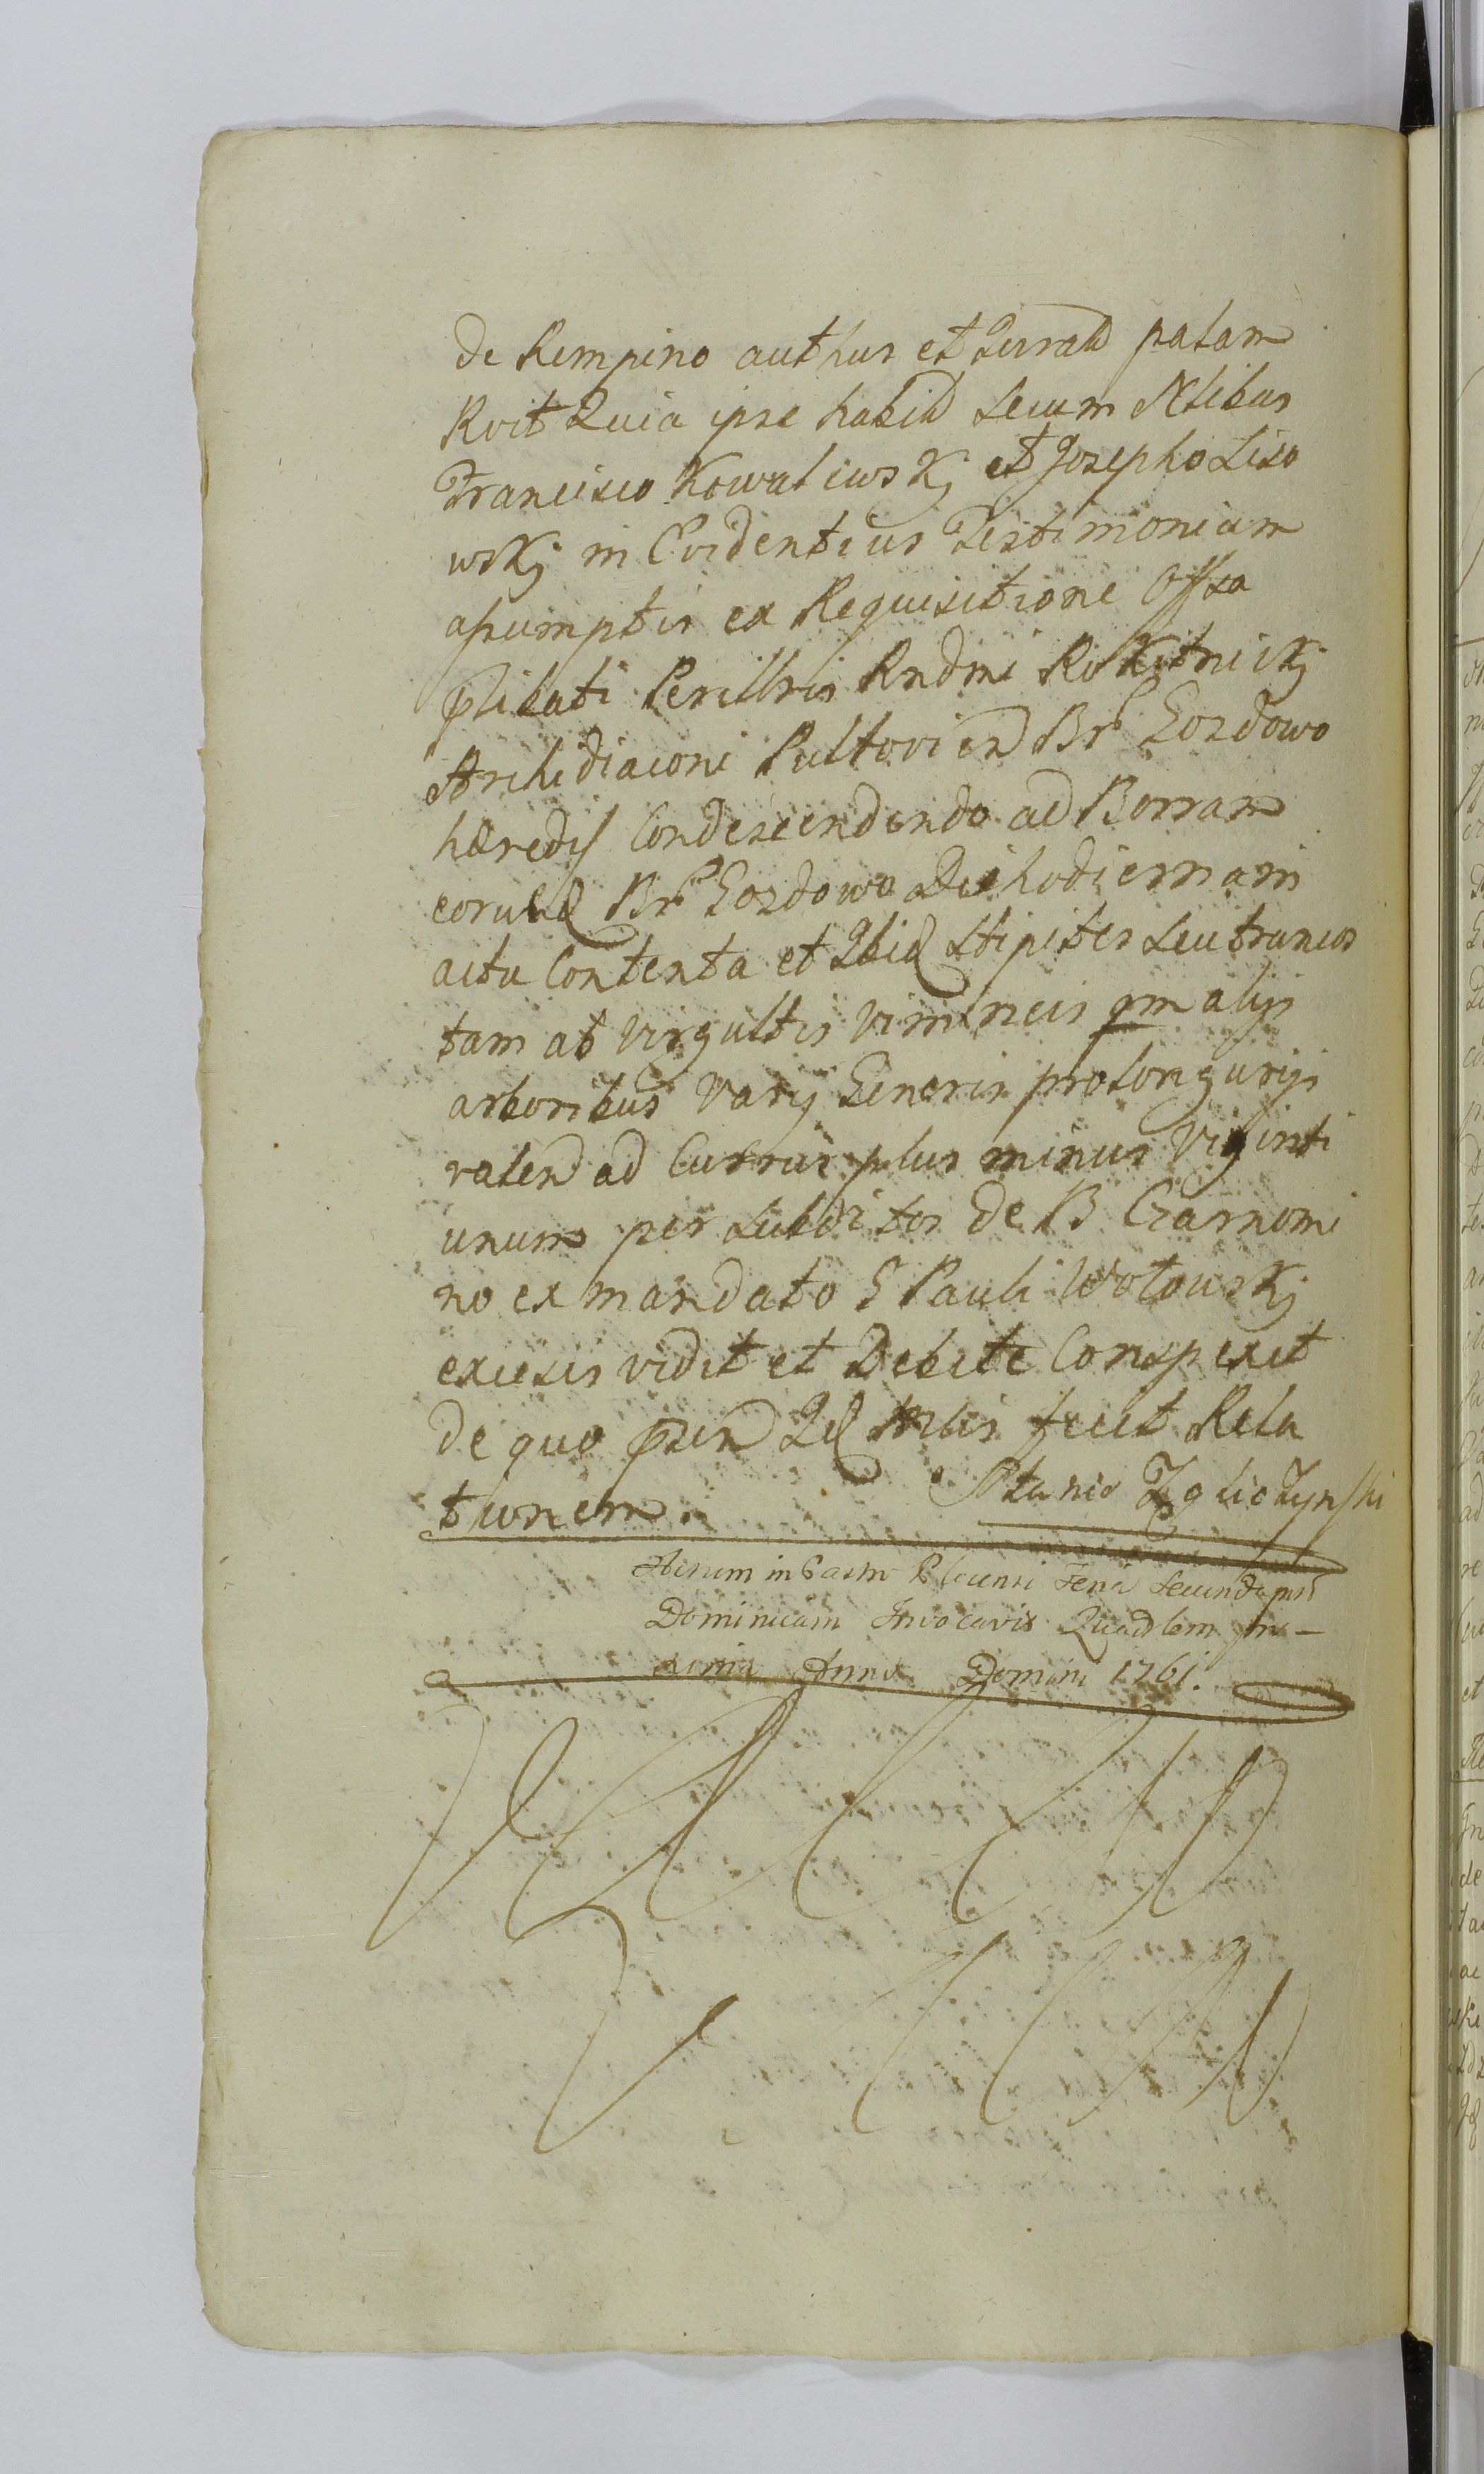 de Rempino authus et Terrald palam
Rvit Quia ipse habid secum Nlibus
Francisco Kowalewskj et Josepho Liso
wskj in Evidentius Testimonium
assumptis ex Requisitione Offsa
plibati Perillris Rndmi Rokitnickj
Archidiaconi Pultovien Br Gozdowo
hæredis Condescendendo ad Borram
Br Gozdowo hodiernam
actu Contenta et Ibiq stipites seu truncos
tam ab Virgultis Vimineis qm alijs
arboribus Varij Generis pro longurijs
valen ad Currus plus minus Viginti
unum per subditos de B Czarnomi
no ex mandato G Pauli Wołowskj
excisis vidit et Debite Conspexit
de quo psen Idq Mlis fecit Rela
tionem. Stanis Zglictynski
Actum in Castro Plocensi Feria Secunda post
Dominicam Invocavit Quadlem pro-
xima Anno Domini 1761.